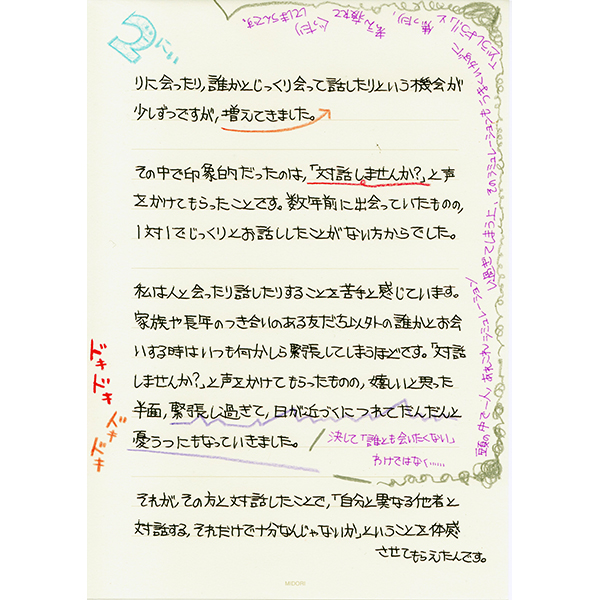 りに会ったり,誰かとじっくり会って話したりという機会が
少しずつですが,増えてきました。
その中で印象的だったのは,「対話しませんか?」と声
をかけてもらったことです。数年前に出会っていたものの,
1対1でじっくりとお話ししたことがない方からでした。
私は人と会ったり話したりすることを苦手と感じています。
家族や長年のつき合いのある友だち以外の誰かとお会
いする時はいつも何かしら緊張してしまうほどです。「対話
しませんか?」と声をかけてもらったものの,嬉しいと思った
半面,緊張し過ぎて,日が近づくにつれてだんだんと
憂うつにもなっていきました。
決して「誰とも会いたくない」
わけではなく……
ドキ
ドキ
ドキ
ドキ
それが,その方と対話したことで,「自分と異なる他者と
対話する,それだけで十分なんじゃないか」ということを体感
させてもらえたんです。
頭の中で一人,あれこれシミュレーション
し過ぎてしまう上,そのシミュレーションもうまくいかずに
「どうしよう!」と
焦ったり,
考え疲れて
ぐったり
してしまうんです。
MIDORI